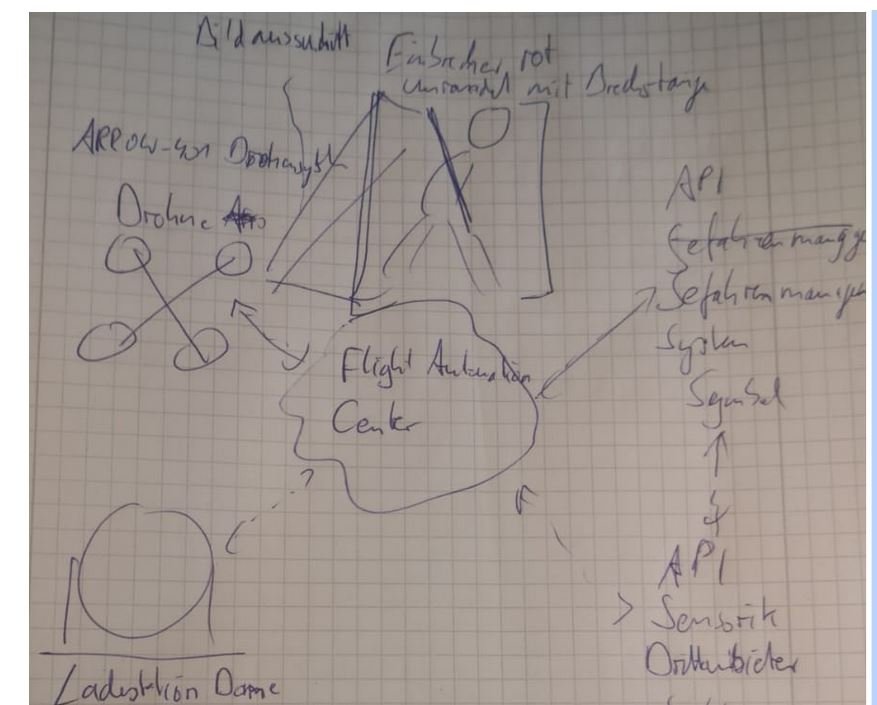 Bildausschnitt
Einbrecher rot
umrandet mit Brechstange
ARROW-401
Drohne
API
Gefahrenmang
Gefahrenmanagem
System
Symbol
Flight Automation
Center
API
Sensorik
Drittanbieter
Ladestation Dome